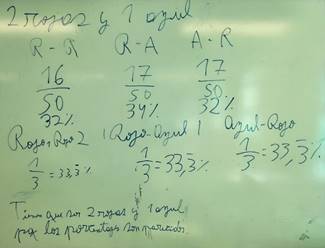 2 rojas y 1 azul
R - R R - A A - R
16/50 17/50 17/50
32% 34% 32%
Rojo-Rojo 2 Rojo-Azul 1 Azul-Rojo
1/3 = 33,3̄% 1/3 = 33,3̄% 1/3 = 33,3̄%
Tienen que ser 2 rojas y 1 azul
por los porcentajes son parecidos